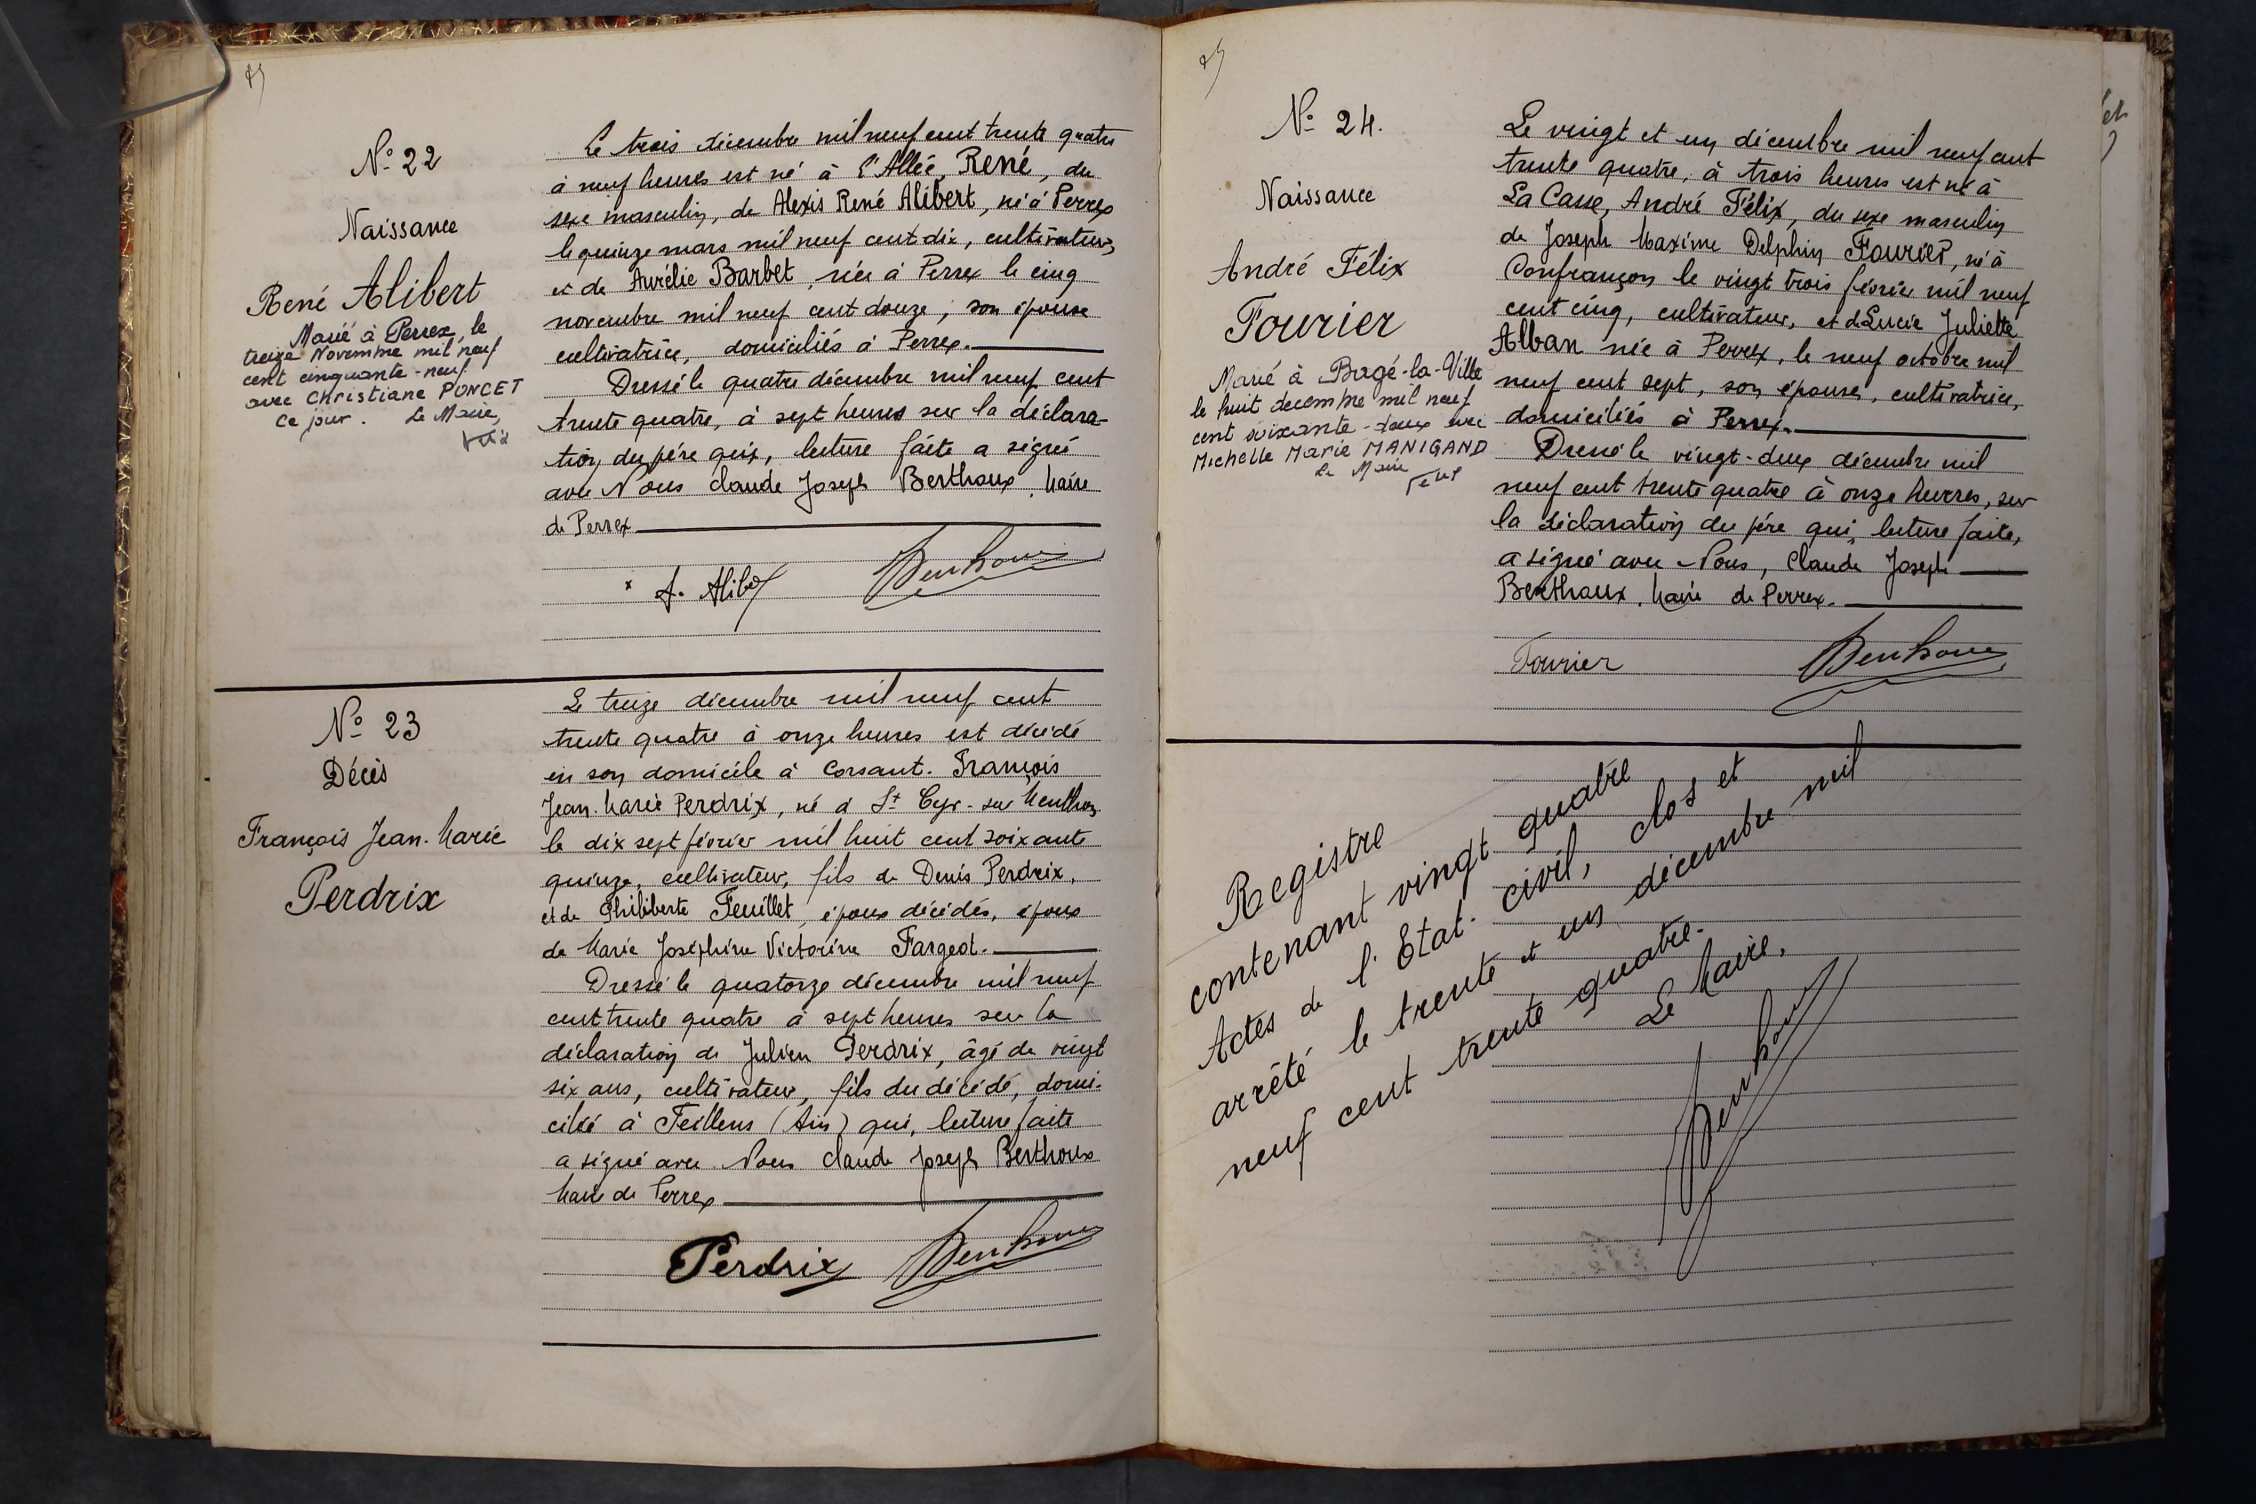 N° 22
Naissance
René Alibert
Marié à Perrex, le
treize Novembre mil neuf
cent cinquante-neuf
avec Christiane PONCET
Ce jour. Le Maire,
Le trois décembre mil neuf cent trente quatre
à neuf heures est né à l'Allée, René, du
sexe masculin, de Alexis René Alibert, né à Perrex
le quinze mars mil neuf cent dix, cultivateur,
et de Aurélie Barbet, née à Perrex le cinq
novembre mil neuf cent douze, son épouse
cultivatrice, domiciliés à Perrex.
Dressé le quatre décembre mil neuf cent
trente quatre, à sept heures sur la déclara-
tion du père qui, lecture faite a signé
avec Nous Claude Joseph Berthoux, Maire
de Perrex
A. Alibert
Berthoux
N° 23
Décès
François Jean-Marie
Perdrix
Le treize décembre mil neuf cent
trente quatre à onze heures est décédé
en son domicile à Corsant. François
Jean-Marie Perdrix, né à St Cyr-sur Menthon
le dix sept février mil huit cent soixante
quinze, cultivateur, fils de Denis Perdrix,
et de Philiberte Feuillet, époux décédés, époux
de Marie Joséphine Victorine Fargeot.
Dressé le quatorze décembre mil neuf
cent trente quatre à sept heures sur la
déclaration de Julien Perdrix, âgé de vingt
six ans, cultivateur, fils du décédé, domi-
cilié à Feillens (Ain) qui, lecture faite
a signé avec Nous Claude Joseph Berthoux
Maire de Perrex
Perdrix
Berthoux
N° 24.
Naissance
André Félix
Fourier
Marié à Bagé-la-Ville
le huit decembre mil neuf
cent soixante-deux avec
Michelle Marie MANIGAND
Le Maire
Le vingt et un décembre mil neuf cent
trente quatre, à trois heures est né à
La Casse, André Félix, du sexe masculin
de Joseph Maxime Delphin Fourier, né à
Confrançon le vingt trois février mil neuf
cent cinq, cultivateur, et de Lucie Juliette
Alban née à Perrex, le neuf octobre mil
neuf cent sept, son épouse, cultivatrice,
domiciliés à Perrex.
Dressé le vingt-deux décembre mil
neuf cent trente quatre à onze heures, sur
la déclaration du père qui, lecture faite,
a signé avec Nous, Claude Joseph
Berthoux, Maire de Perrex.
Fourier
Berthoux
Registre
contenant vingt quatre
Actes de l'Etat-civil, clos et
arrêté le trente et un décembre mil
neuf cent trente quatre.
Le Maire,
Berthoux